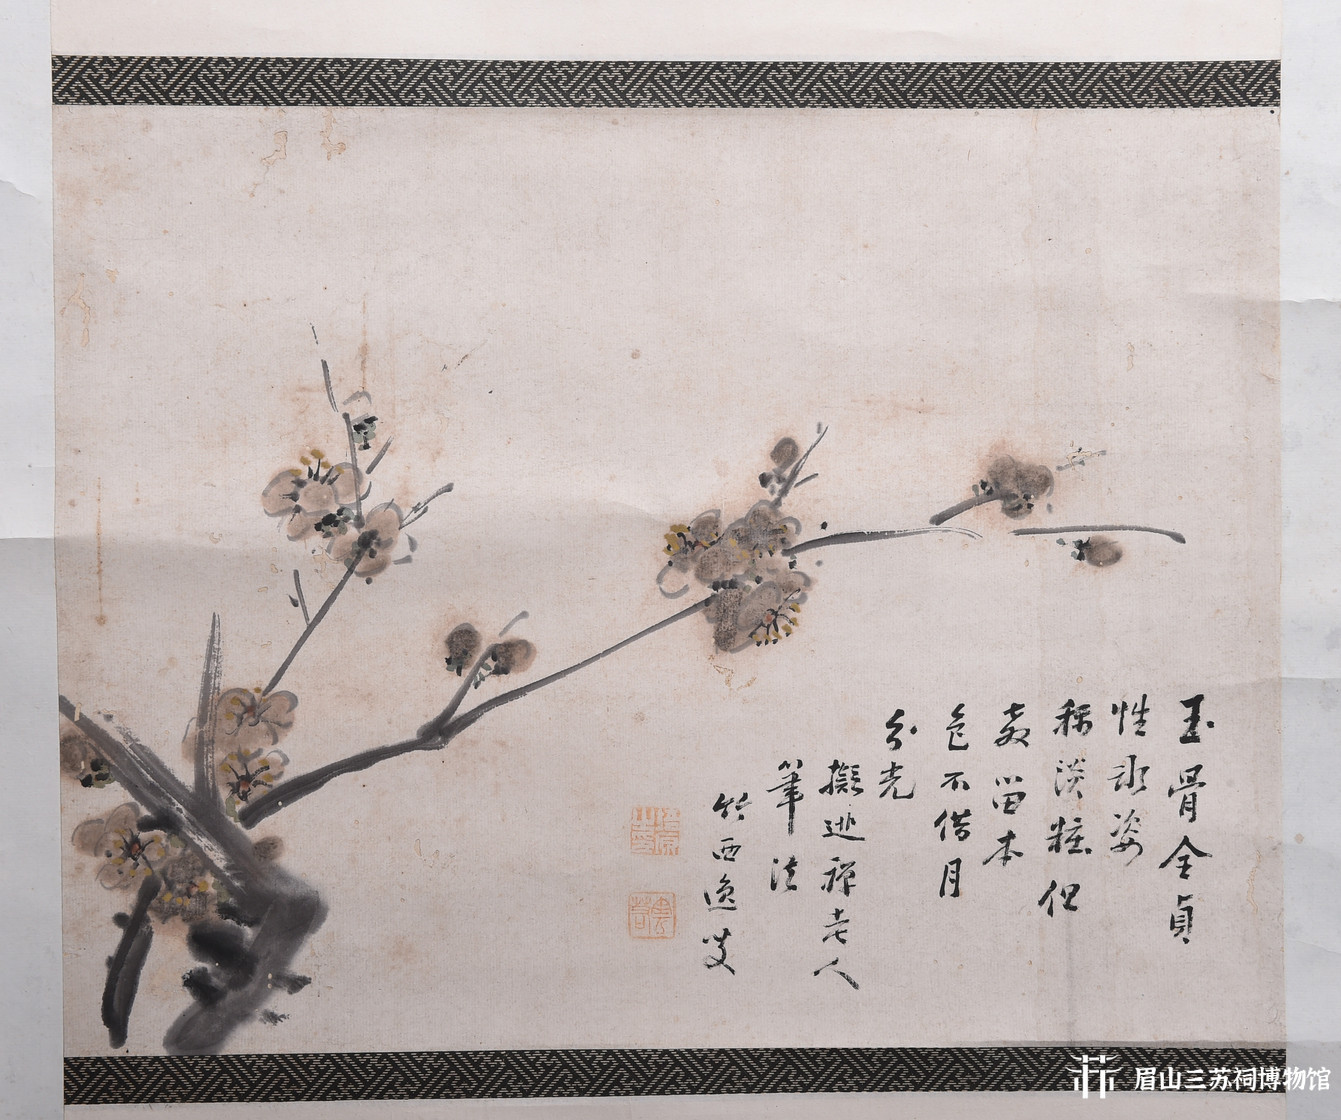 玉骨全貞
性冰姿
稱淡粧但
教留本
色不借月
分光
擬逃禪老人
筆法
竹西逸叟
眉山三苏祠博物馆